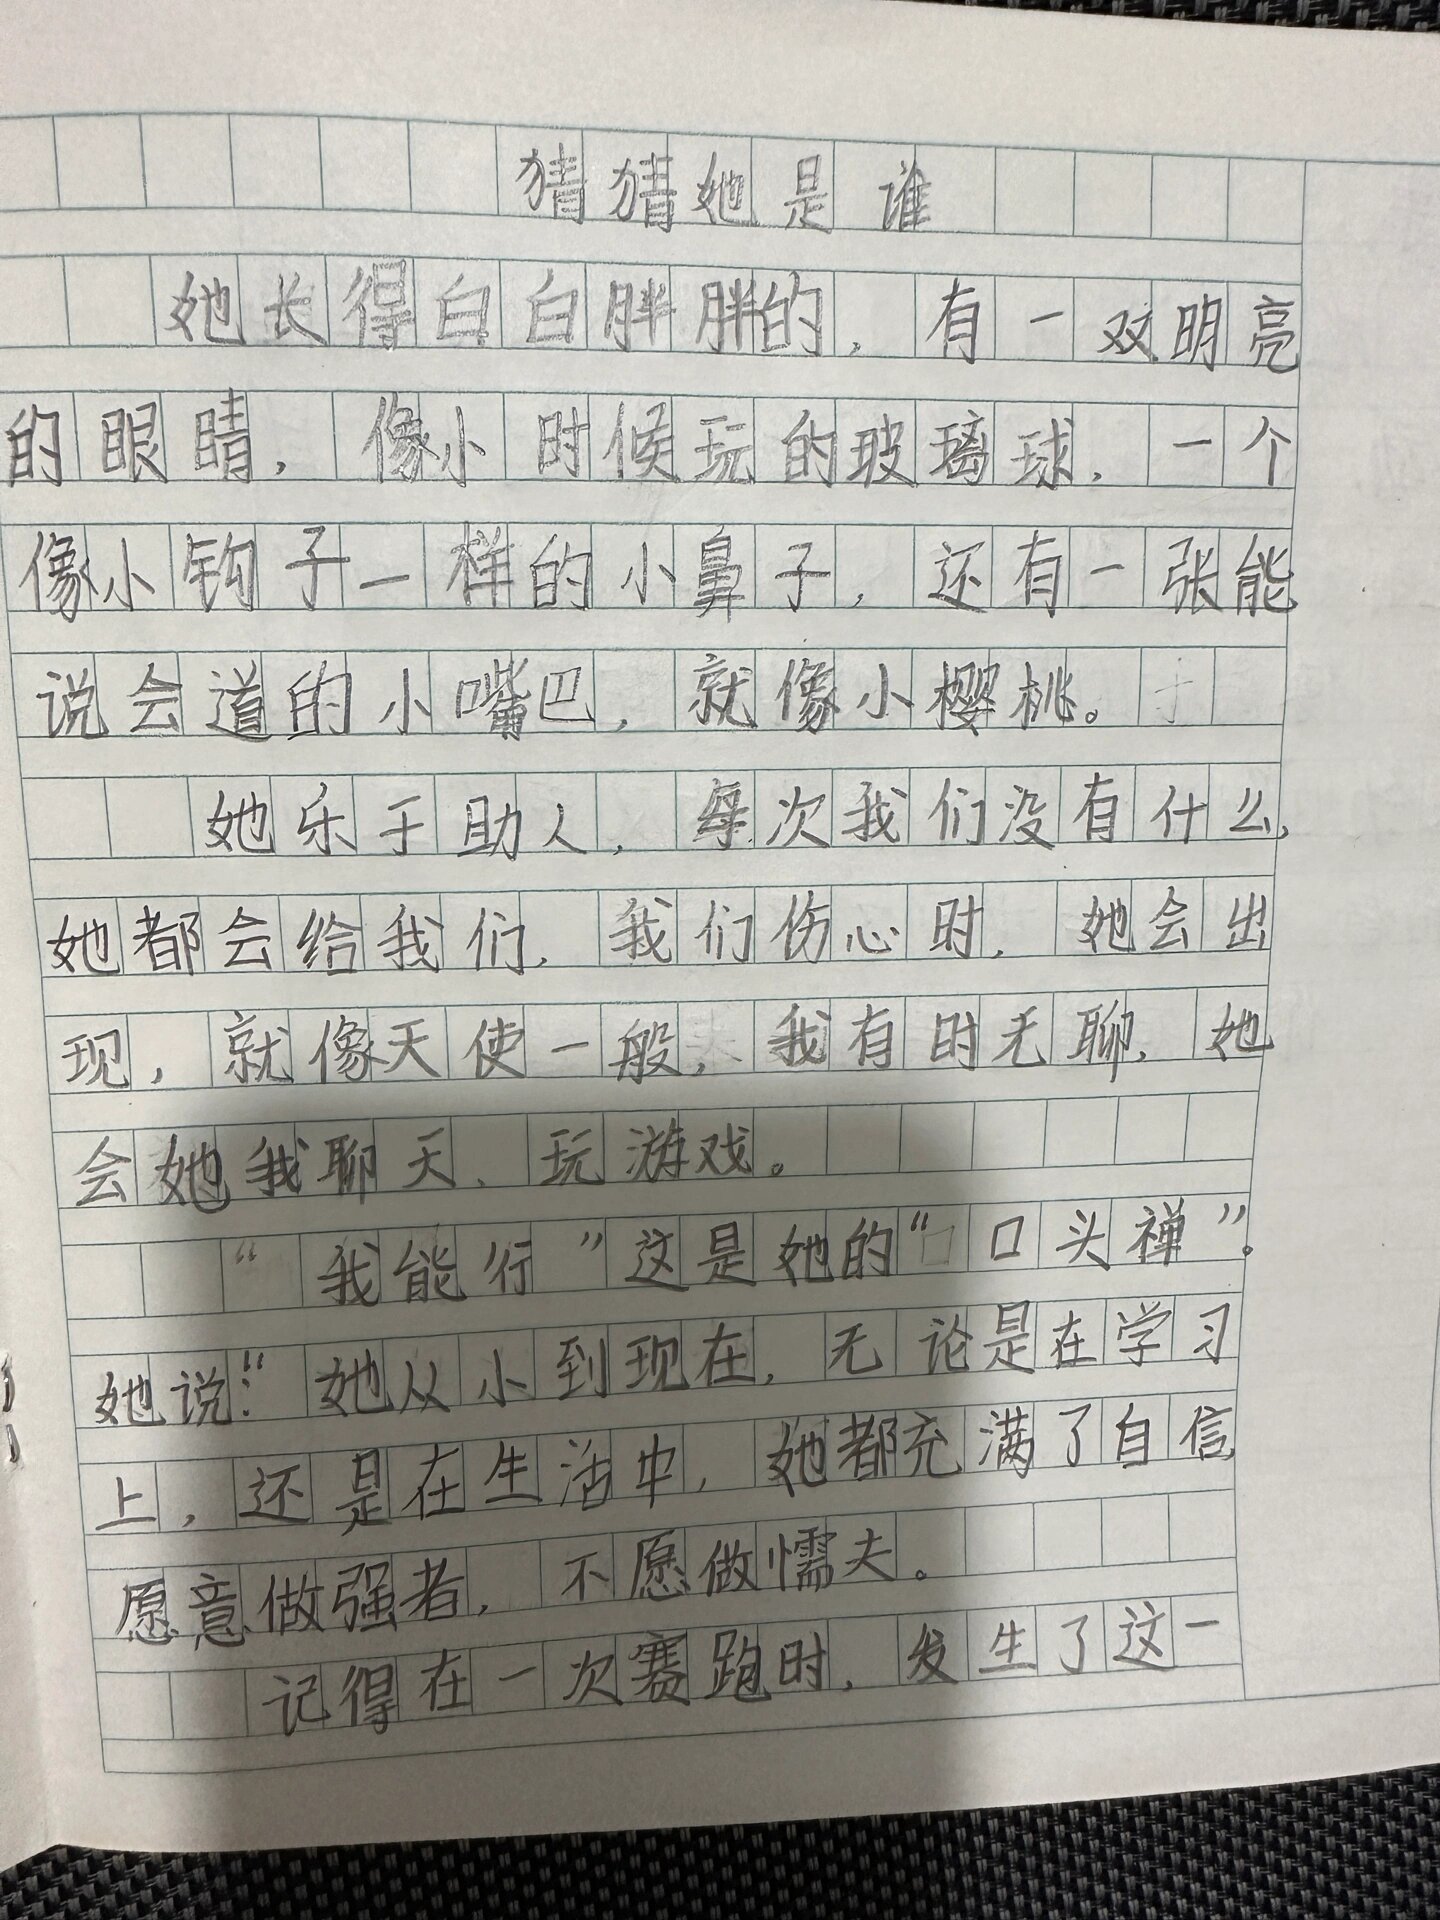 猜猜她是谁
她长得白白胖胖的，有一双明亮
的眼睛，像小时候玩的玻璃球，一个
像小钩子一样的小鼻子，还有一张能
说会道的小嘴巴，就像小樱桃。
她乐于助人，每次我们没有什么，
她都会给我们，我们伤心时，她会出
现，就像天使一般，我有时无聊，她
会她我聊天、玩游戏。
“我能行”这是她的“口头禅”。
她说：“她从小到现在，无论是在学习
上，还是在生活中，她都充满了自信
愿意做强者，不愿做懦夫。
记得在一次赛跑时，发生了这一